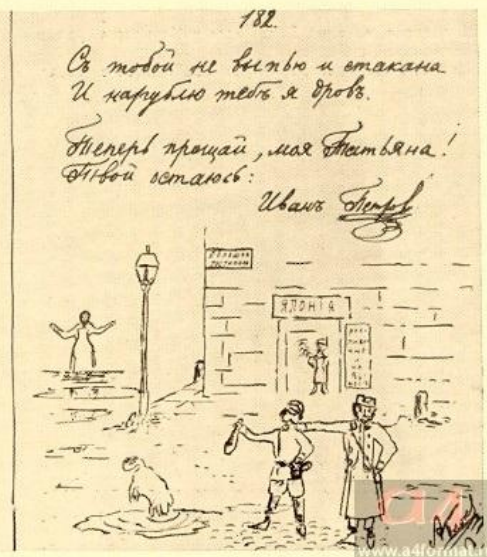 182.
Съ тобой не выпью и стакана
И нарублю тебѣ я дровъ.
Теперь прощай, моя Татьяна!
Твой остаюсь:
Иванъ Петров
ЯПОНІЯ
www.a4format.ru